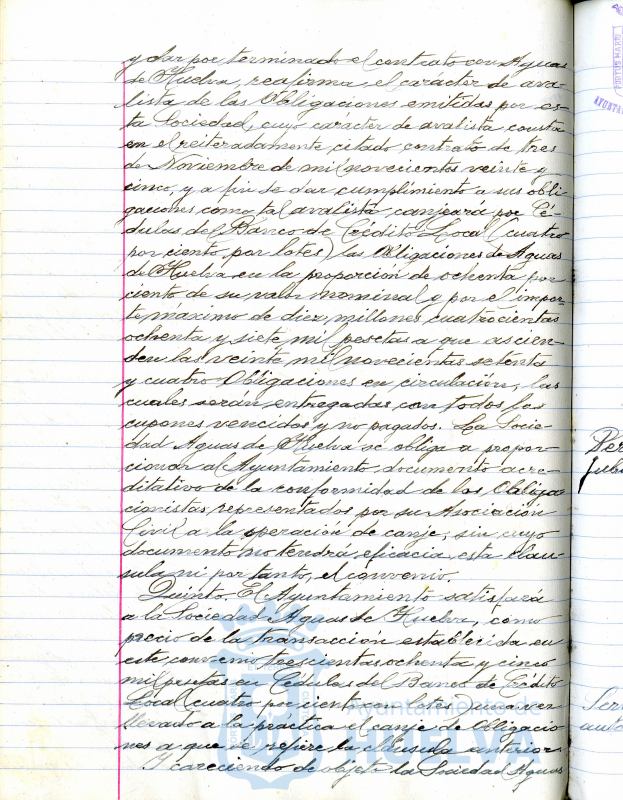 y dar por terminado el contrato con Aguas
de Huelva, reafirma, el carácter de ava-
lista de las Obligaciones emitidas por es-
ta Sociedad, cuyo carácter de avalista consta
en el reiteradamente citado contrato de tres
de Noviembre de mil novecientos veinte y
cinco, y a fin de dar cumplimiento a sus obli-
gaciones como tal avalista canjeará por Cé-
dulas del Banco de Crédito Local (cuatro
por ciento, por lotes) las Obligaciones de Aguas
de Huelva en la proporción de ochenta por
ciento de su valor nominal y por el impor-
te máximo de diez millones cuatrocientas
ochenta y siete mil pesetas a que ascien-
den las veinte mil novecientas setenta
y cuatro Obligaciones en circulación, las
cuales serán entregadas con todos los
cupones vencidos y no pagados. La Socie-
dad Aguas de Huelva se obliga a propor-
cionar al Ayuntamiento documento acre-
ditativo de la conformidad de los Obliga-
cionistas, representados por su Asociación
Civil a la operación de canje, sin cuyo
documento no tendrá eficacia esta cláu-
sula ni por tanto, el convenio.
Quinto. El Ayuntamiento satisfará
a la Sociedad Aguas de Huelva, como
precio de la transacción establecida en
este convenio trescientas ochenta y cinco
mil pesetas en Cédulas del Banco de Crédito
Local (cuatro por ciento con lotes) una vez
llevado a la práctica el canje de Obligacio-
nes a que se refiere la cláusula anterior
Y careciendo de objeto la Sociedad Aguas
Ayuntamiento de
HUELVA